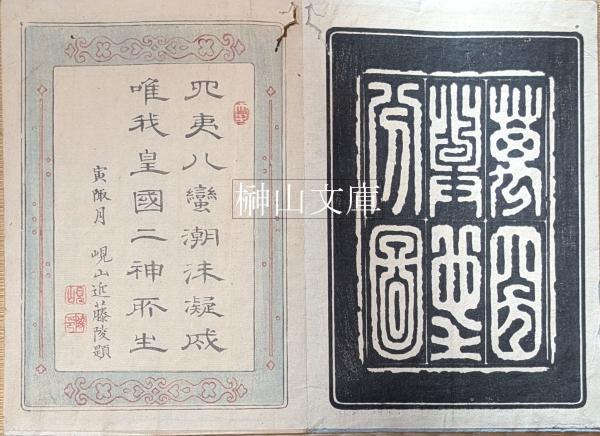 萬國
輿地
分圖
四夷八蠻潮沫凝成
唯我皇國二神所生
寅陬月 峴山近藤陵題
榊山文庫